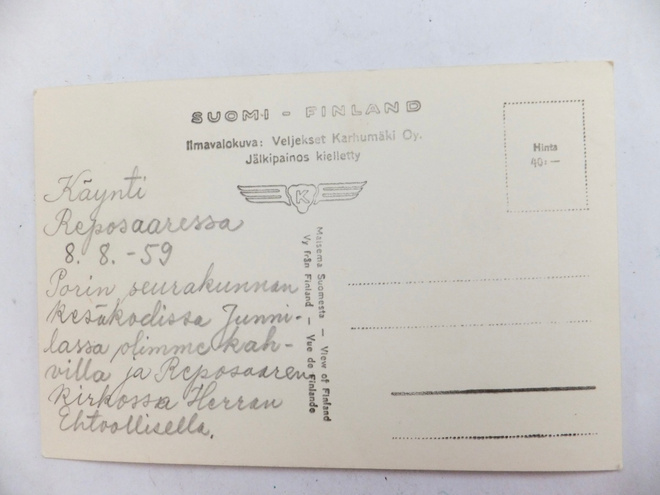 SUOMI - FINLAND
Ilmavalokuva: Veljekset Karhumäki Oy.
Jälkipainos kielletty
K
Hinta
40:—
Käynti
Reposaaressa
8. 8. -59
Porin seurakunnan
kesäkodissa Junni-
lassa olimme kah-
villa ja Reposaaren
kirkossa Herran
Ehtoollisella.
Maisema Suomesta — View of Finland
Vy från Finland — Vue de Finlande